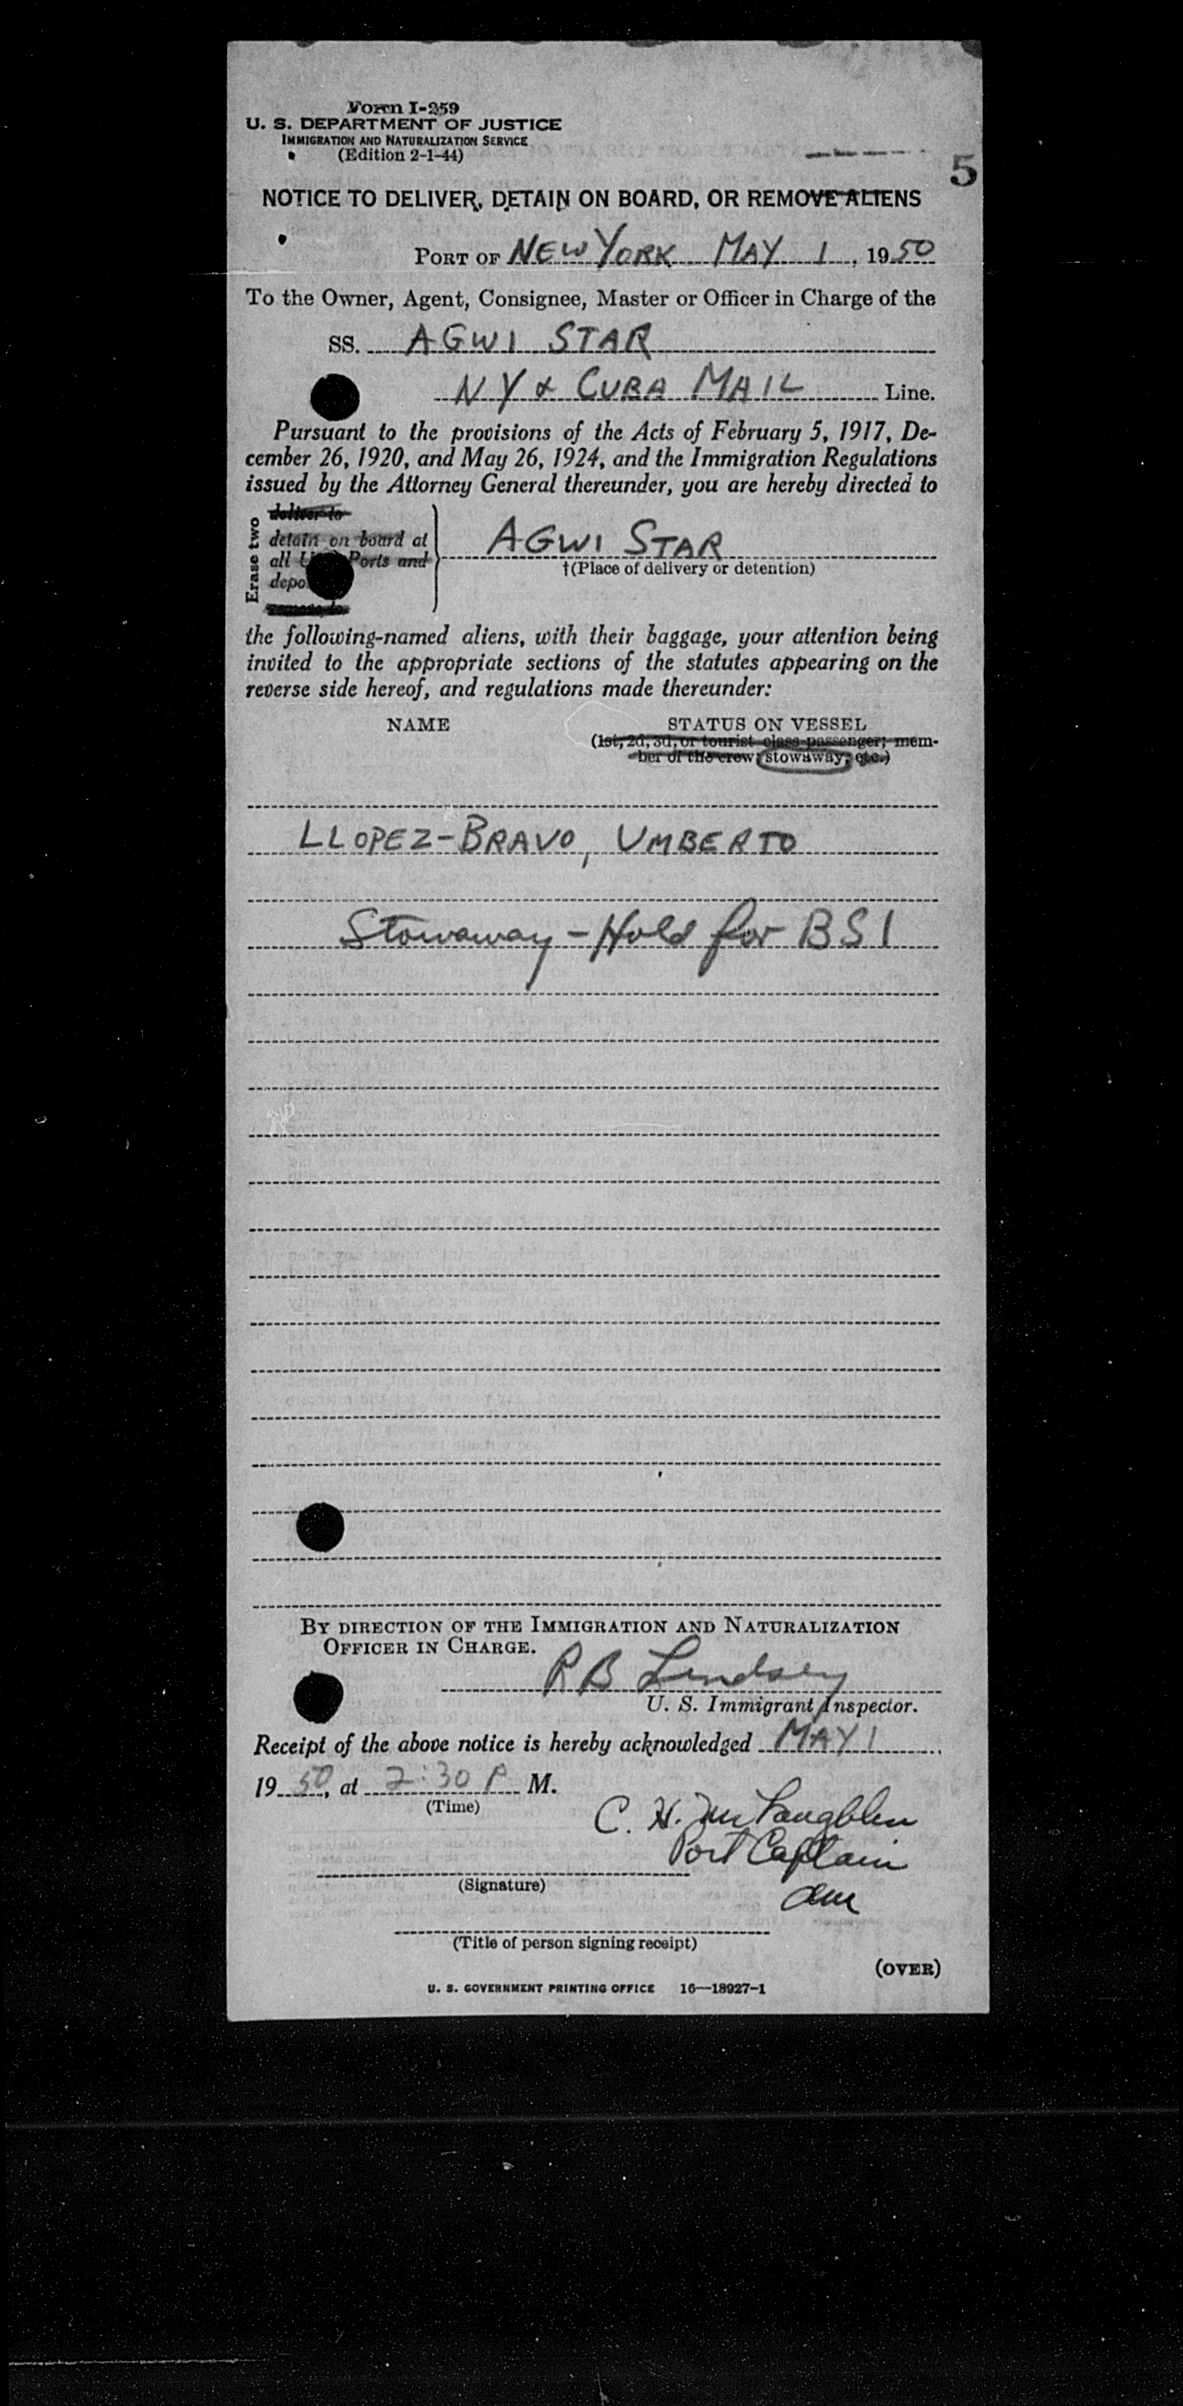 Form I-259
U. S. DEPARTMENT OF JUSTICE
IMMIGRATION AND NATURALIZATION SERVICE
(Edition 2-1-44)
5
NOTICE TO DELIVER, DETAIN ON BOARD, OR REMOVE ALIENS
PORT OF NEW YORK MAY 1, 1950
To the Owner, Agent, Consignee, Master or Officer in Charge of the
SS. AGWI STAR
NY & CUBA MAIL Line.
Pursuant to the provisions of the Acts of February 5, 1917, De-
cember 26, 1920, and May 26, 1924, and the Immigration Regulations
issued by the Attorney General thereunder, you are hereby directed to
Erase two
deliver to
detain on board at
all Ports and
AGWI STAR
†(Place of delivery or detention)
remove to
the following-named aliens, with their baggage, your attention being
invited to the appropriate sections of the statutes appearing on the
reverse side hereof, and regulations made thereunder:
NAME STATUS ON VESSEL
(1st, 2d, 3d, or tourist class passenger; mem-
ber of the crew; stowaway; etc.)
LLOPEZ-BRAVO, UMBERTO
Stowaway - Hold for BSI
BY DIRECTION OF THE IMMIGRATION AND NATURALIZATION
OFFICER IN CHARGE.
R B Lindsey
U. S. Immigrant Inspector.
Receipt of the above notice is hereby acknowledged MAY 1
1950, at 2:30 P M.
(Time)
C. H. McLaughlin
Port Captain
(Signature)
(Title of person signing receipt)
(OVER)
U. S. GOVERNMENT PRINTING OFFICE 16—18927-1